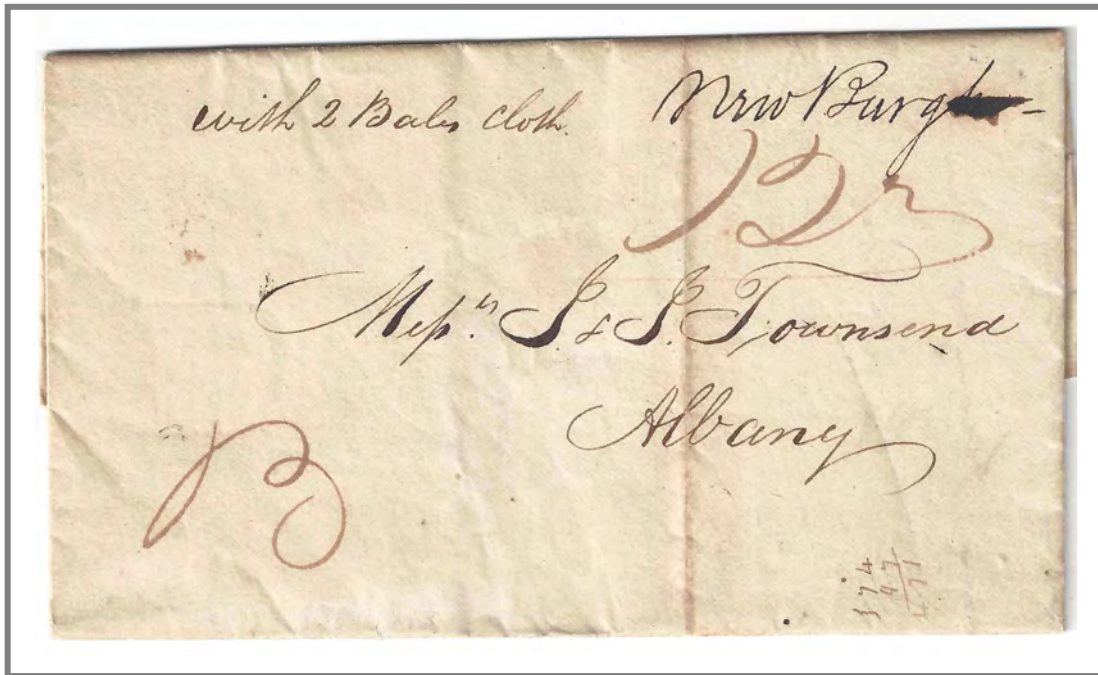 with 2 Bales cloth.
New Burgh
12½
Messrs. I & J. Townsend
Albany
B